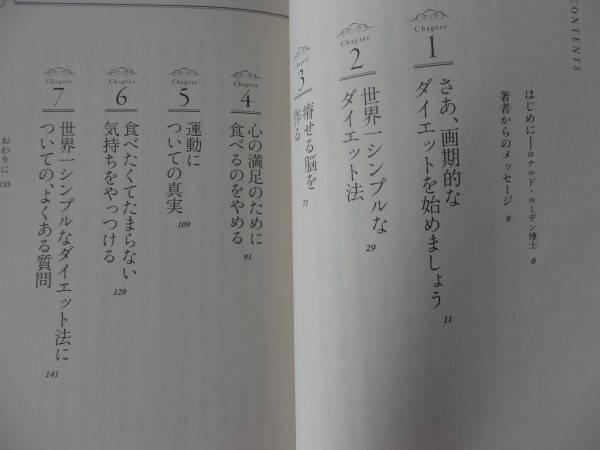 CONTENTS
はじめに──ロナルド・ルーデン博士 6
著者からのメッセージ 9
Chapter
1
さあ、画期的な
ダイエットを始めましょう
11
Chapter
2
世界一シンプルな
ダイエット法
29
Chapter
3
痩せる脳を
作る
71
Chapter
4
心の満足のために
食べるのをやめる
91
Chapter
5
運動に
ついての真実
109
Chapter
6
食べたくてたまらない
気持ちをやっつける
129
Chapter
7
世界一シンプルなダイエット法に
ついての、よくある質問
141
おわりに 155